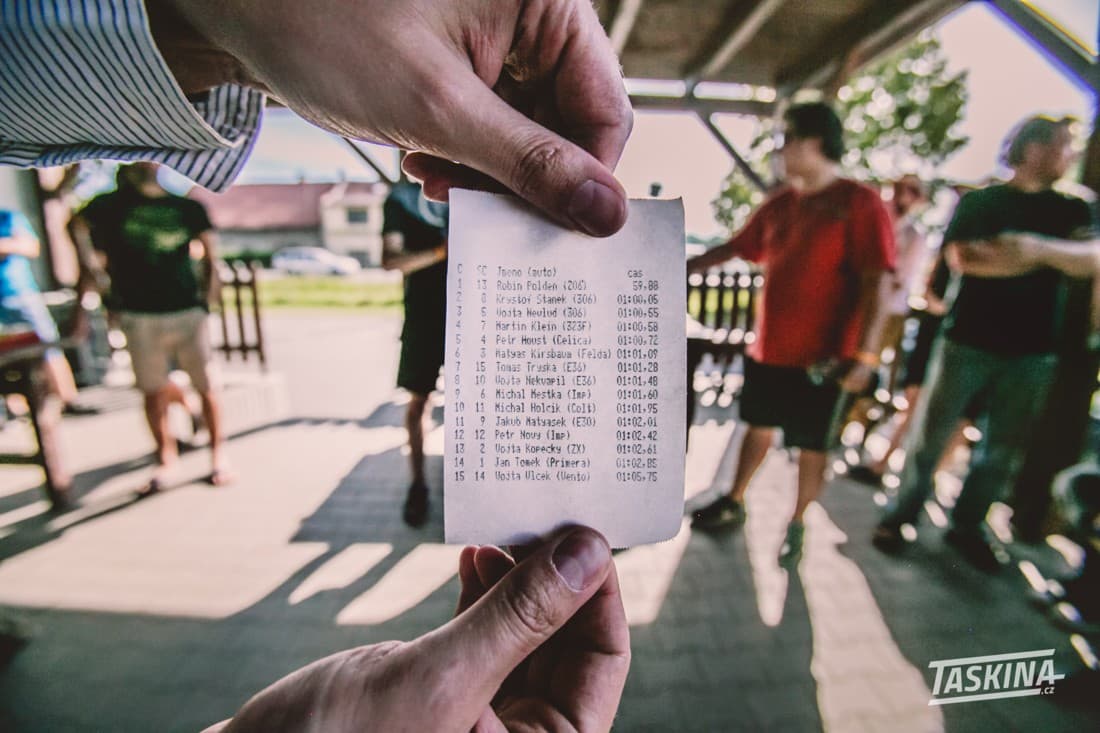 C SC Jmeno (auto) cas
1 13 Robin Polden (206) 59,88
2 8 Krystof Stanek (306) 01:00,05
3 5 Vojta Neulud (306) 01:00,55
4 7 Martin Klein (323F) 01:00,58
5 4 Petr Houst (Celica) 01:00,72
6 3 Matyas Kirsbaum (Felda) 01:01,09
7 15 Tomas Truska (E36) 01:01,28
8 10 Vojta Nekvapil (E36) 01:01,48
9 6 Michal Mestka (Imp) 01:01,60
10 11 Michal Holcik (Colt) 01:01,95
11 9 Jakub Matyasek (E30) 01:02,01
12 12 Petr Novy (Imp) 01:02,42
13 2 Vojta Kopecky (ZX) 01:02,61
14 1 Jan Tomek (Primera) 01:02,85
15 14 Vojta Vlcek (Vento) 01:05,75
TASKINA.cz